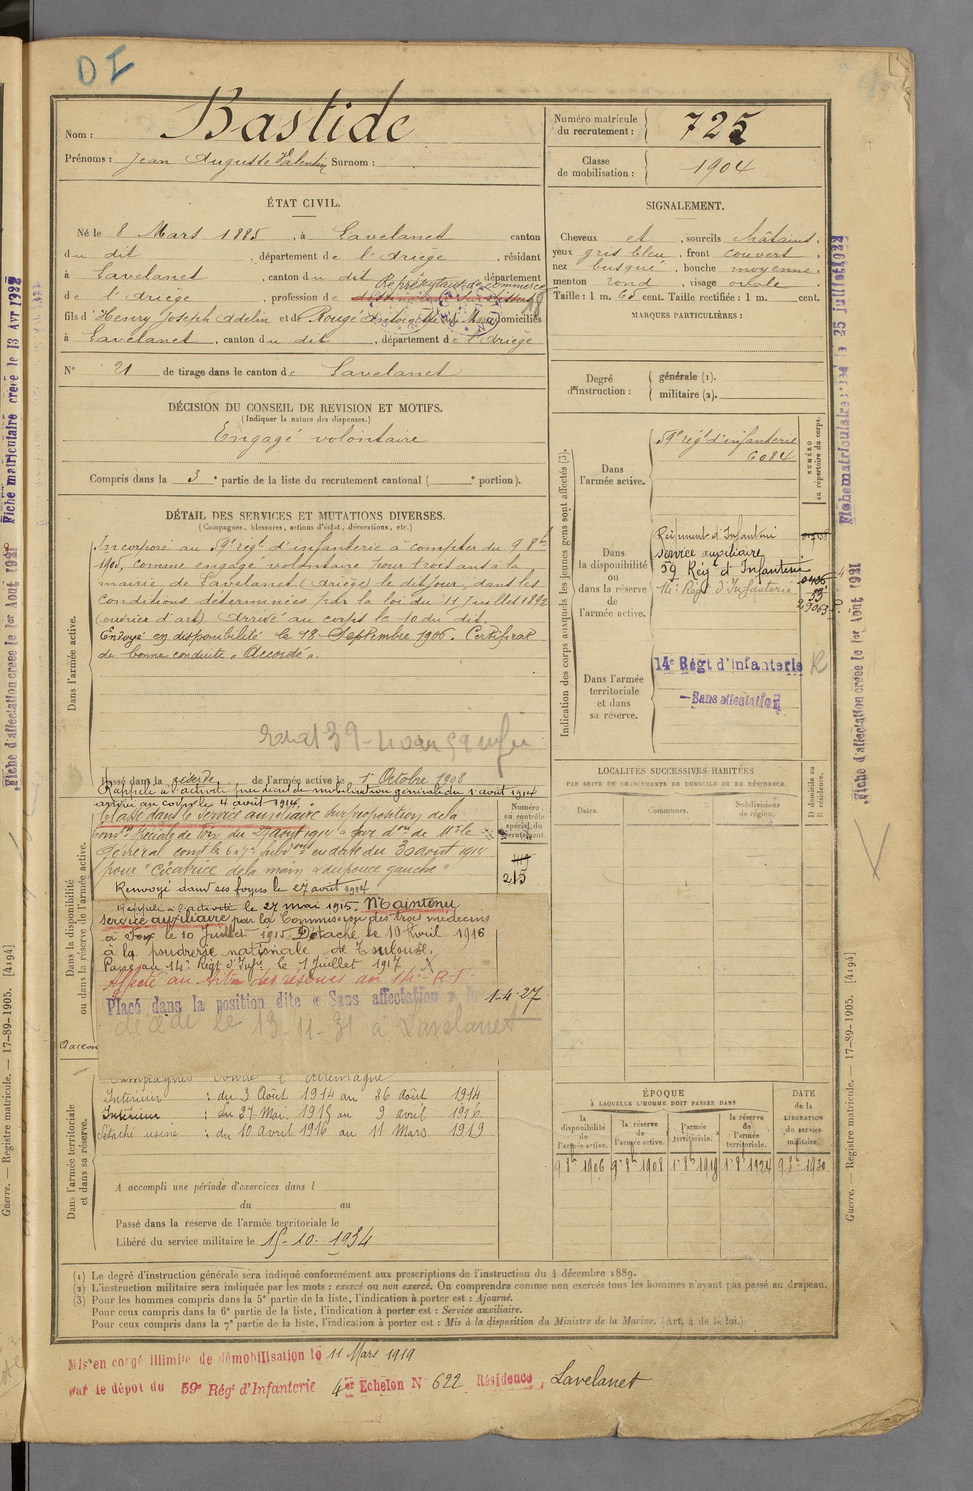 DI
Nom : Bastide
Prénoms : Jean Auguste Valentin Surnom :
Numéro matricule du recrutement : 725
Classe de mobilisation : 1904
ÉTAT CIVIL.
Né le 8 Mars 1885, à Lavelanet canton
du dit, département de l'Ariège, résidant
à Lavelanet, canton du dit, département
Représentant de commerce
de l'Ariège, profession de
fils d'Henry Joseph Adelin et de Rougé Antoinette Marie domiciliés
à Lavelanet, canton du dit, département de l'Ariège
N° 21 de tirage dans le canton de Lavelanet
SIGNALEMENT.
Cheveux et, sourcils châtains,
yeux gris bleu, front couvert,
nez busqué, bouche moyenne,
menton rond, visage ovale.
Taille : 1 m. 65 cent. Taille rectifiée : 1 m. cent.
MARQUES PARTICULIÈRES :
Degré d'instruction : générale (1).
militaire (2).
DÉCISION DU CONSEIL DE REVISION ET MOTIFS.
(Indiquer la nature des dispenses.)
Engagé volontaire
Compris dans la 3e partie de la liste du recrutement cantonal ( e portion).
DÉTAIL DES SERVICES ET MUTATIONS DIVERSES.
(Campagnes, blessures, actions d'éclat, décorations, etc.)
Dans l'armée active.
Incorporé au 59e regt d'infanterie à compter du 9 8bre
1905, comme engagé volontaire pour trois ans à la
mairie de Lavelanet (Ariège) le dit jour, dans les
conditions déterminées par la loi du 11 Juillet 1892
(ouvrier d'art). Arrivé au corps le 10 du dit.
Envoyé en disponibilité le 18 Septembre 1906. Certificat
de bonne conduite « Accordé ».
Passé dans la réserve de l'armée active le 1er Octobre 1908
Dans la disponibilité ou dans la réserve de l'armée active.
Rappelé à l'activité par décret de mobilisation générale du 1er août 1914
arrivé au corps le 4 avril 1914.
Classé dans le service auxiliaire sur proposition de la
Comon Spéciale de Foix du 27 août 1914
Général comt les 6 et 7e subdons en date du 30 août 1914
pour "Cicatrice de la main et du pouce gauche"
Renvoyé dans ses foyers le 27 août 1914
Rappelé à l'activité le 27 mai 1915. Maintenu
service auxiliaire par la Commission des trois médecins
à Foix le 10 Juillet 1915. Détaché le 10 Avril 1916
à la poudrerie nationale de Toulouse.
Passé au 14e Régt d'Infie le 1 Juillet 1917
Placé dans la position dite « Sans affectation » 1-4-27
décédé le 13-11-31 à Lavelanet
Numéro au contrôle spécial du recrutement.
215
Dans l'armée territoriale et dans sa réserve.
Campagnes contre l'Allemagne
Intérieur : du 3 Août 1914 au 26 Août 1914
Intérieur : du 27 Mai 1915 au 9 avril 1916
Détaché usine : du 10 Avril 1916 au 11 Mars 1919
A accompli une période d'exercices dans l
du au
Passé dans la réserve de l'armée territoriale le
Libéré du service militaire le 15-10-1934
Indication des corps auxquels les jeunes gens sont affectés (3).
NUMÉRO au répertoire du corps.
Dans l'armée active.
59e rég. d'infanterie
6084
Dans la disponibilité ou dans la réserve de l'armée active.
Régiment d'Infanterie
service auxiliaire
59 Rég. d'Infanterie
14e Régt d'Infanterie
Dans l'armée territoriale et dans sa réserve.
14e Régt d'Infanterie R
Sans affectation
LOCALITÉS SUCCESSIVES HABITÉES
PAR SUITE DE CHANGEMENTS DE DOMICILE OU DE RÉSIDENCE.
Dates. Communes. Subdivisions de région. D domicile ou R résidence.
ÉPOQUE
À LAQUELLE L'HOMME DOIT PASSER DANS
la disponibilité de l'armée active. la réserve de l'armée active. l'armée territoriale. la réserve de l'armée territoriale.
DATE de la LIBÉRATION du service militaire.
9 8bre 1906 9 8bre 1908 1er 8bre 1918 1er 8bre 1924 9 8bre 1930
(1) Le degré d'instruction générale sera indiqué conformément aux prescriptions de l'instruction du 4 décembre 1889.
(2) L'instruction militaire sera indiquée par les mots : exercé ou non exercé. On comprendra comme non exercés tous les hommes n'ayant pas passé au drapeau.
(3) Pour les hommes compris dans la 5e partie de la liste, l'indication à porter est : Ajourné.
Pour ceux compris dans la 6e partie de la liste, l'indication à porter est : Service auxiliaire.
Pour ceux compris dans la 7e partie de la liste, l'indication à porter est : Mis à la disposition du Ministre de la Marine. (Art. 4 de la loi.)
Mis en congé illimité de démobilisation le 11 Mars 1919
par le dépôt du 59e Régt d'Infanterie 4er Echelon N° 622 Résidence, Lavelanet
Fiche matriculaire créée le 13 Avr 1922
Fiche d'affectation créée le 1er Août 1921
Guerre. — Registre matricule. — 17-89-1905. [4194]
Fiche matriculaire créée le 25 juillet 1922
Fiche d'affectation créée le 1er Août 1921
Guerre. — Registre matricule. — 17-89-1905. [4194]